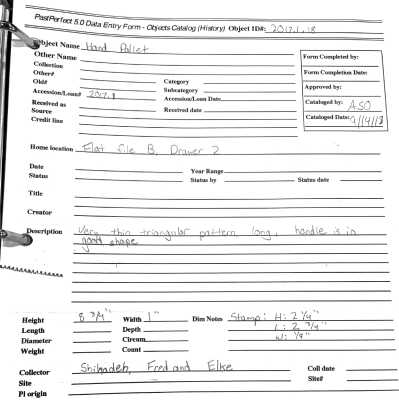 PastPerfect 5.0 Data Entry Form - Objects Catalog (History) Object ID#: 2017.1.18
Object Name Hand Pallet
Other Name
Collection
Other#
Old# Category
Accession/Loan# 2017.1 Subcategory
Received as Accession/Loan Date
Source Received date
Credit line
Form Completed by:
Form Completion Date:
Approved by:
Cataloged by: ASO
Cataloged Date: 9/14/18
Home location Flat file B, Drawer 2
Date Year Range
Status Status by Status date
Title
Creator
Description Very thin triangular pattern, long, handle is in
good shape
Height 8 3/4" Width 1" Dim Notes Stamp: H: 2 1/4"
Length Depth L: 2 3/4"
Diameter Circum. W: 1/4"
Weight Count
Collector Fred and Elke Coll date
Site Site#
Pl origin